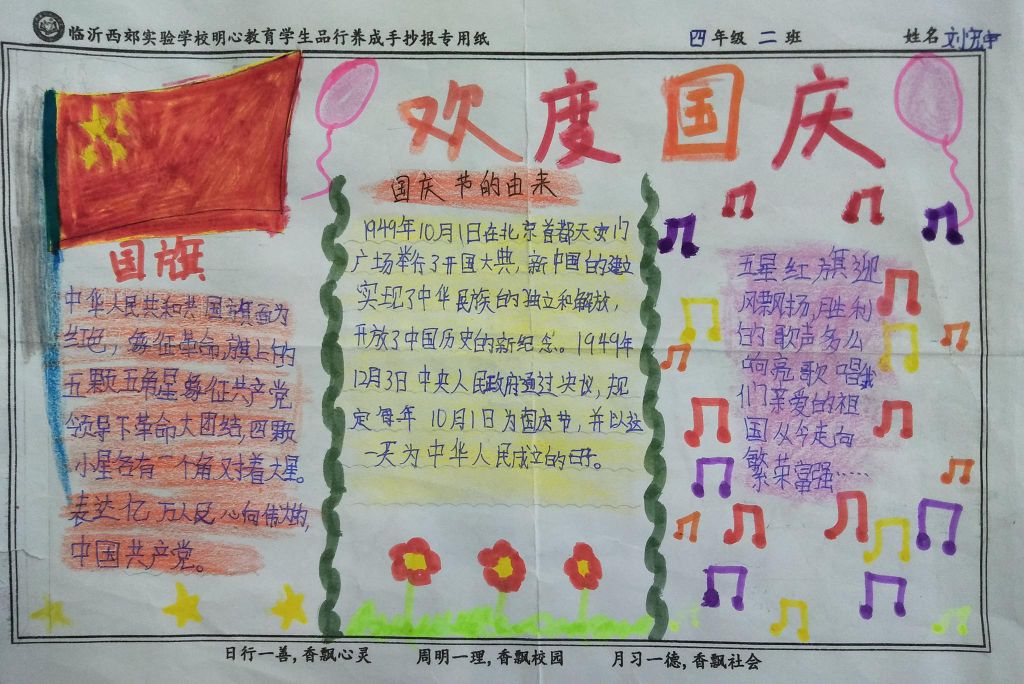 临沂西郊实验学校明心教育学生品行养成手抄报专用纸
四年级 二班
姓名 刘
欢度国庆
国旗
中华人民共和共国旗面为
红色，象征革命，旗上的
五颗五角星象征共产党
领导下革命大团结，四颗
小星各有一个角对着大星。
表达亿万人民心向伟大的，
中国共产党。
国庆节的由来
1949年10月1日在北京首都天安门
广场举行了开国大典，新中国的建立
实现了中华民族的独立和解放，
开放了中国历史的新纪念。1949年
12月3日中央人民政府通过决议，规
定每年10月1日为国庆节，并以这
一天为中华人民成立的日子。
五星红旗迎
风飘扬，胜利
的歌声多么
响亮歌唱我
们亲爱的祖
国从今走向
繁荣富强……
日行一善，香飘心灵
周明一理，香飘校园
月习一德，香飘社会